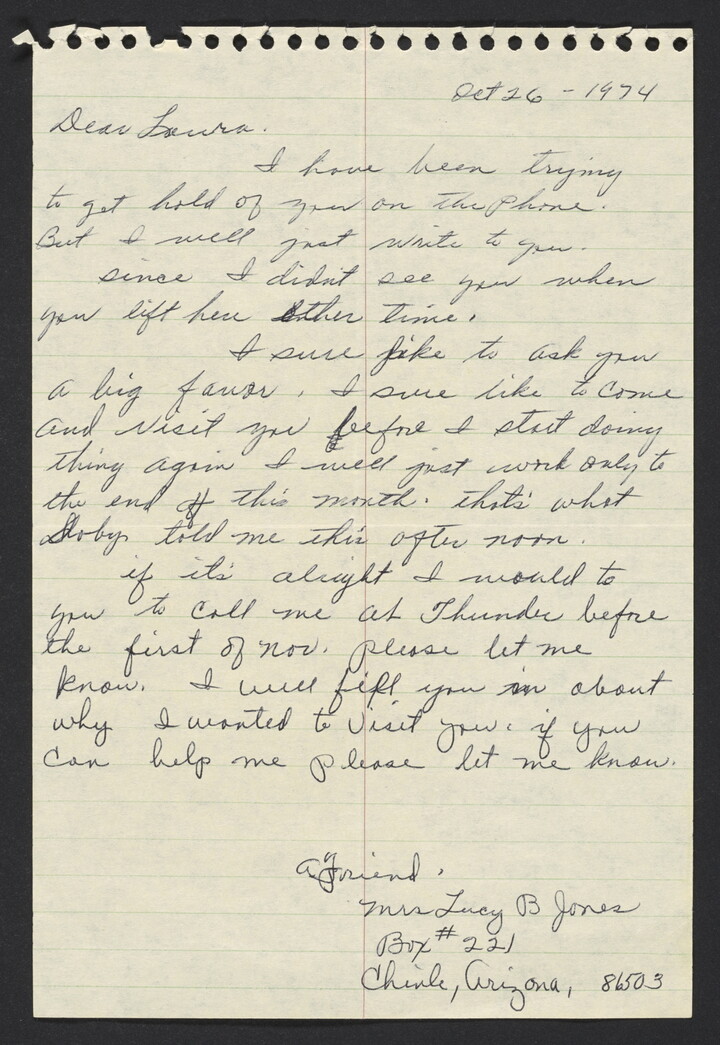 Oct 26 - 1974
Dear Laura.
I have been trying
to get hold of you on the Phone.
But I well just write to you.
since I didn't see you when
you lift here other time.
I sure like to ask you
a big favor. I sure like to come
and visit you before I start doing
thing again I well just work only to
the end of this month. that's what
told me this after noon.
if it's alright I would to
you to call me at Thunder before
the first of nov. please let me
know. I well fill you in about
why I wanted to visit you. if you
can help me please let me know.
a Friend.
Mrs Lucy B Jones
Box # 221
Chinle, Arizona, 86503